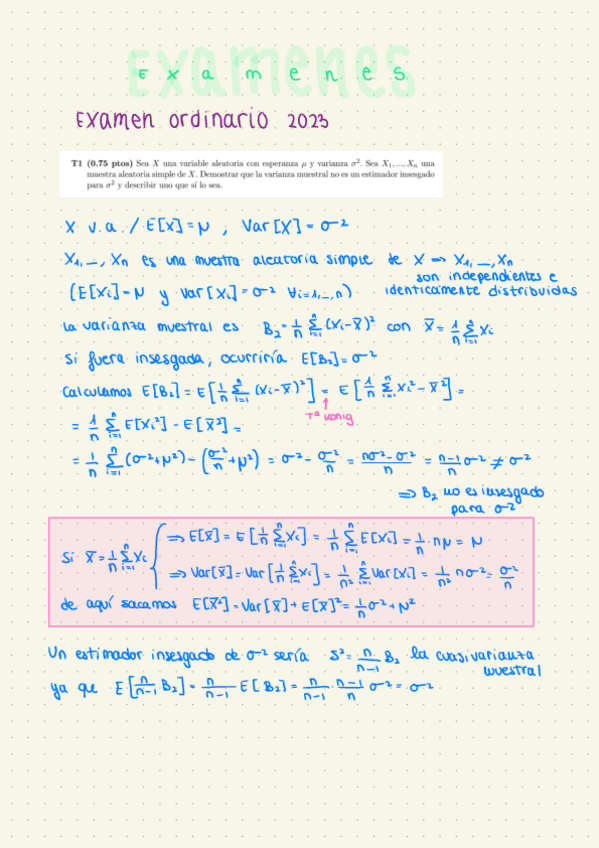 Examenes
Examenes
Examen ordinario 2023
T1 (0.75 ptos) Sea X una variable aleatoria con esperanza μ y varianza σ². Sea X₁, ..., Xₙ una
muestra aleatoria simple de X. Demostrar que la varianza muestral no es un estimador insesgado
para σ² y describir uno que sí lo sea.
X v.a. / E[X] = μ , Var[X] = σ²
X₁, _, Xₙ es una muestra aleatoria simple de X ⟹ X₁, _, Xₙ
son independientes e
(E[Xi] = μ y Var[Xi] = σ² ∀i=1, _, n) identicamente distribuidas
La varianza muestral es B₂ = 1/n ∑ᵢ₌₁ⁿ (Xi - X̄)² con X̄ = 1/n ∑ᵢ₌₁ⁿ Xi
Si fuera insesgada, ocurriría E[B₂] = σ²
Calculamos E[B₂] = E[1/n ∑ᵢ₌₁ⁿ (Xi - X̄)²] = E[1/n ∑ᵢ₌₁ⁿ Xi² - X̄²] =
↑
Tª König
= 1/n ∑ᵢ₌₁ⁿ E[Xi²] - E[X̄²] =
= 1/n ∑ᵢ₌₁ⁿ (σ² + μ²) - (σ²/n + μ²) = σ² - σ²/n = (nσ² - σ²)/n = (n-1)/n σ² ≠ σ²
⟹ B₂ no es insesgado
para σ²
⟹ E[X̄] = E[1/n ∑ᵢ₌₁ⁿ Xi] = 1/n ∑ᵢ₌₁ⁿ E[Xi] = 1/n · nμ = μ
Si X̄ = 1/n ∑ᵢ₌₁ⁿ Xi
⟹ Var[X̄] = Var[1/n ∑ᵢ₌₁ⁿ Xi] = 1/n² ∑ᵢ₌₁ⁿ Var[Xi] = 1/n² nσ² = σ²/n
de aquí sacamos E[X̄²] = Var[X̄] + E[X̄]² = 1/n σ² + μ²
Un estimador insesgado de σ² sería S² = n/(n-1) B₂ la cuasivarianza
muestral
ya que E[n/(n-1) B₂] = n/(n-1) E[B₂] = n/(n-1) · (n-1)/n σ² = σ²